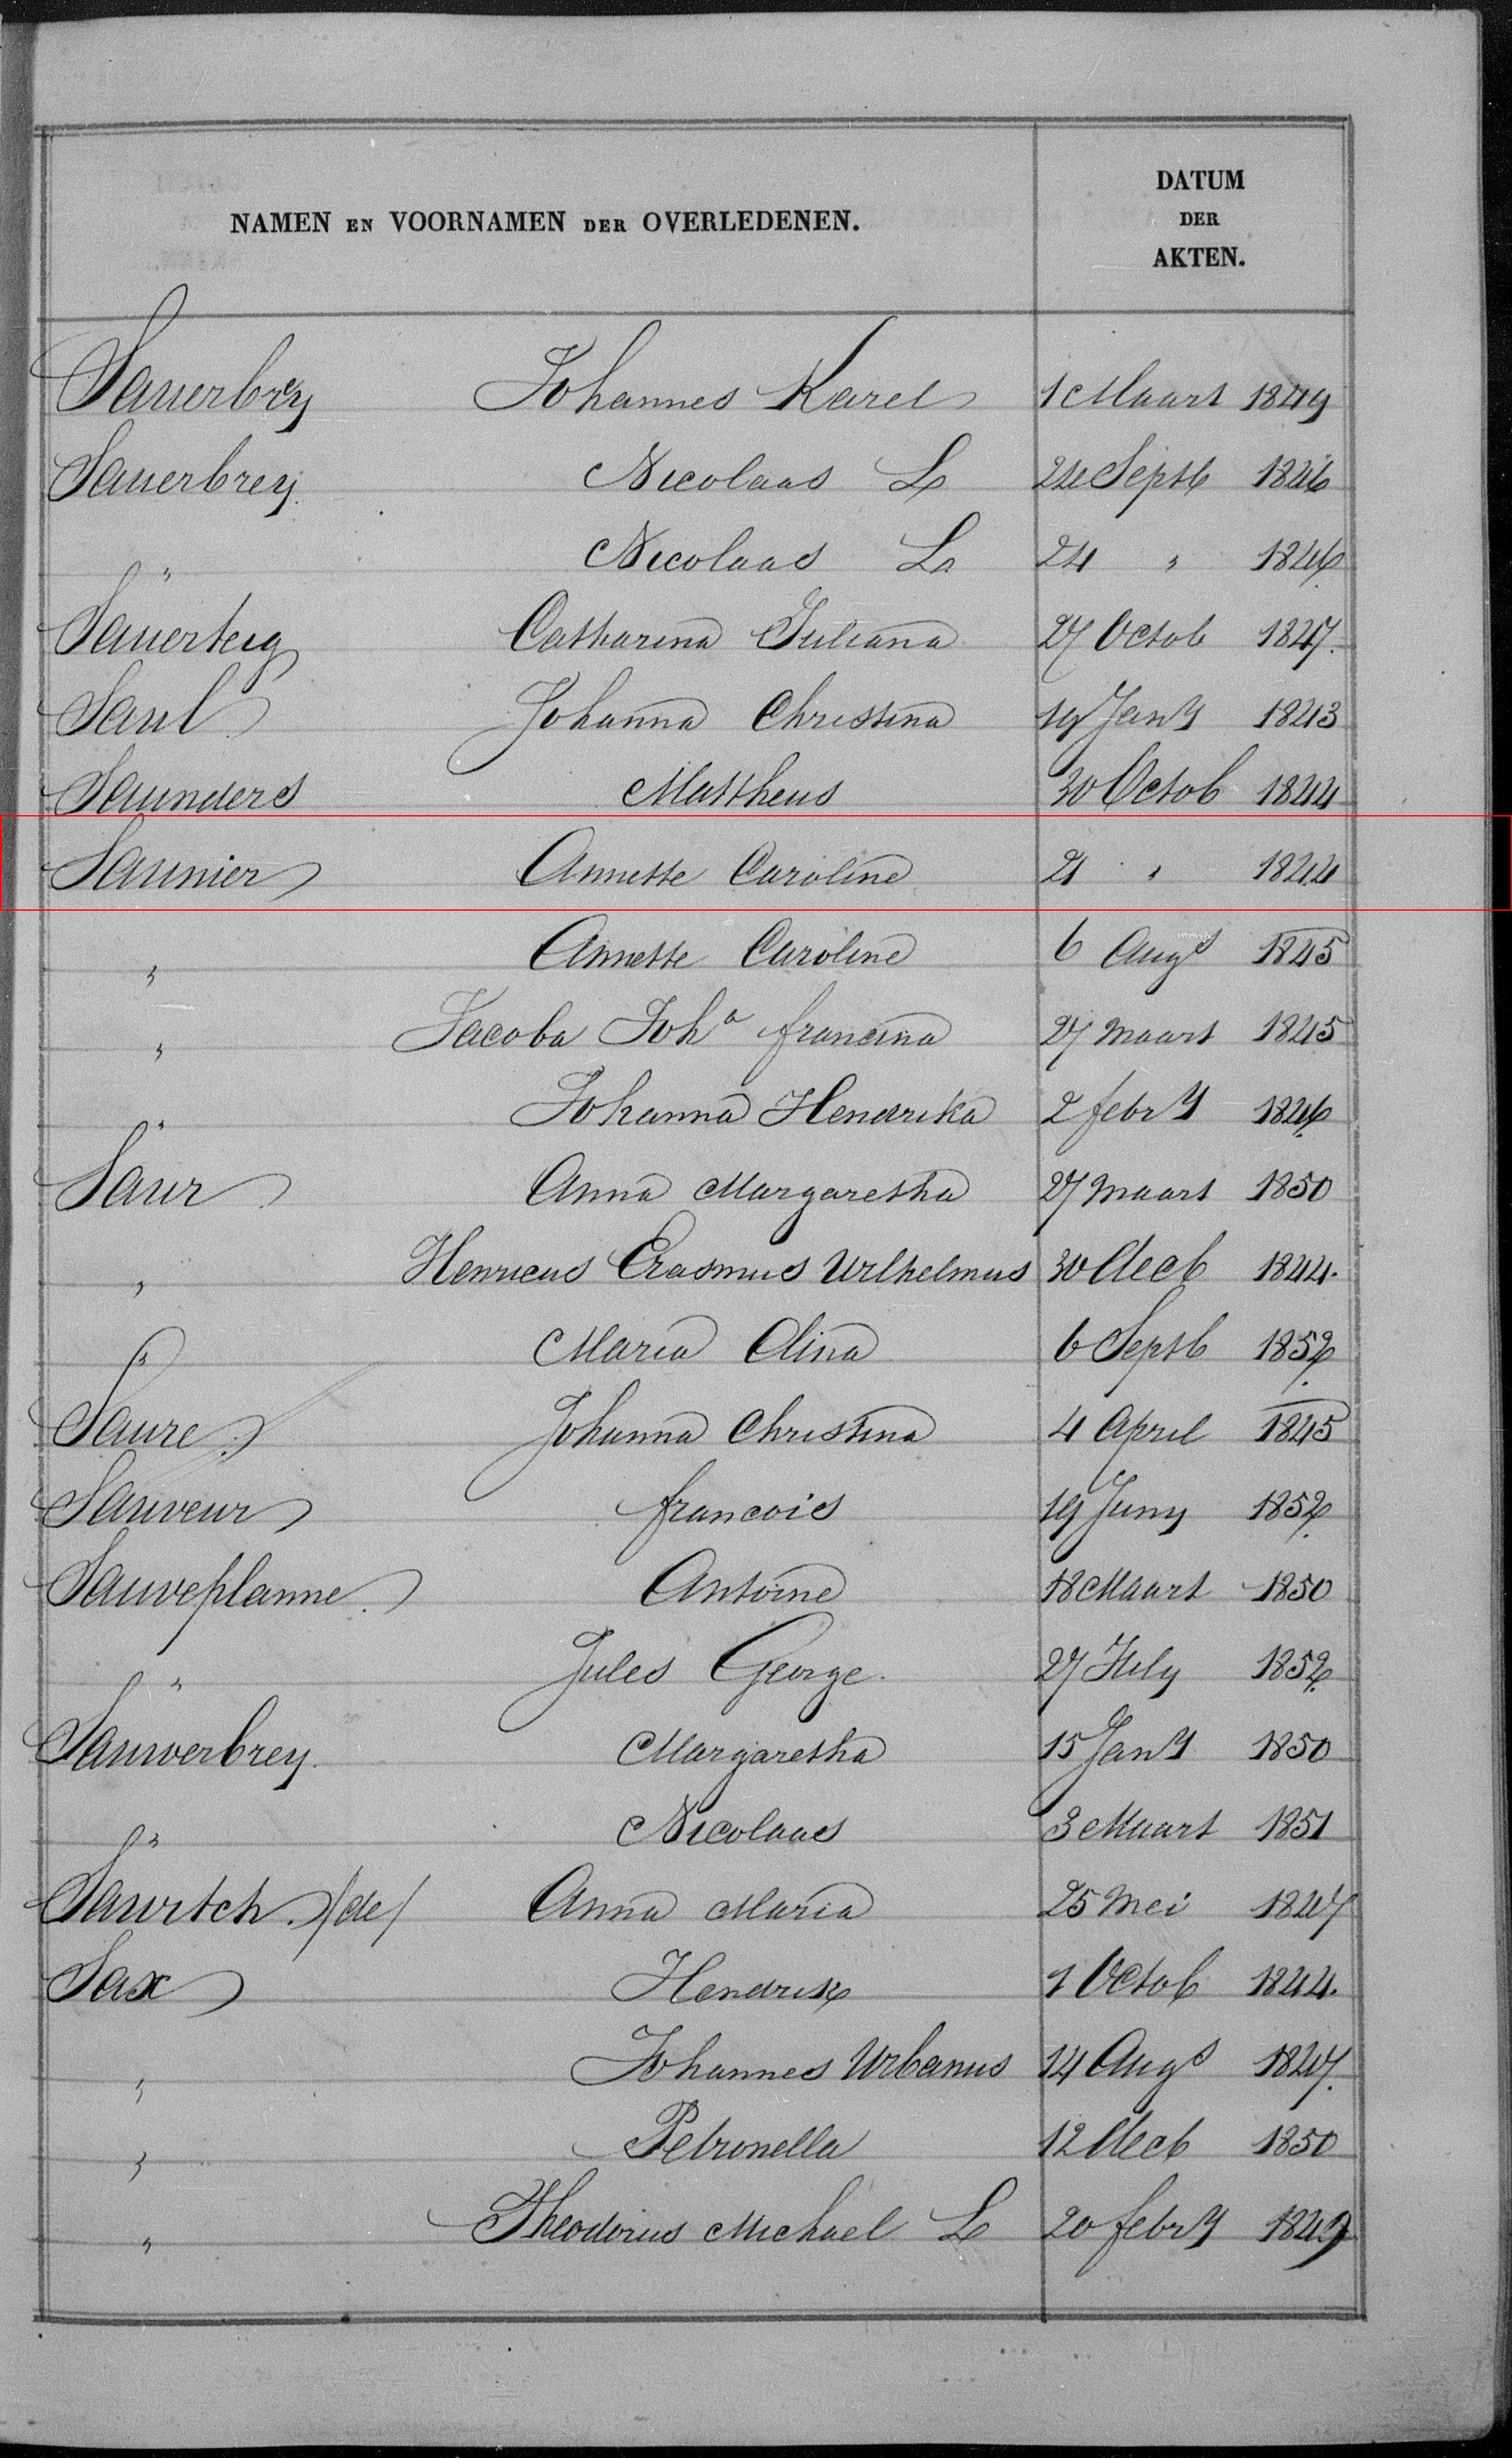 NAMEN EN VOORNAMEN DER OVERLEDENEN.
DATUM
DER
AKTEN.
Sauerbrey Johannes Karel 1 Maart 1849
Sauerbrey Nicolaas L 24 Septb 1846
" Nicolaas L 24 " 1846
Sauerteig Catharina Juliana 27 Octob 1847.
Saul Johanna Christina 19 Jany 1843
Saunders Mattheus 30 Octob 1844
Saunier Annette Caroline 21 " 1844
" Annette Caroline 6 Augs 1845
" Jacoba Joha francina 27 maart 1845
" Johanna Hendrika 2 febry 1846
Saur Anna Margaretha 27 maart 1850
" Henricus Erasmus Wilhelmus 30 Decb 1844.
" Maria Alina 6 Septb 1852
Saure Johanna Christina 4 April 1845
Sauveur francois 19 Juny 1852
Sauveplanne Antoine 18 Maart 1850
" Jules George. 27 July 1852
Sauwerbrey Margaretha 15 Jany 1850
" Nicolaas 3 Maart 1851
Sawitch (de) Anna Maria 25 Mei 1847
Sax Hendrik 1 Octob 1844.
" Johannes Urbanus 14 Augs 1847.
" Petronella 12 Decb 1850
" Theodorus Michael L 20 febry 1849